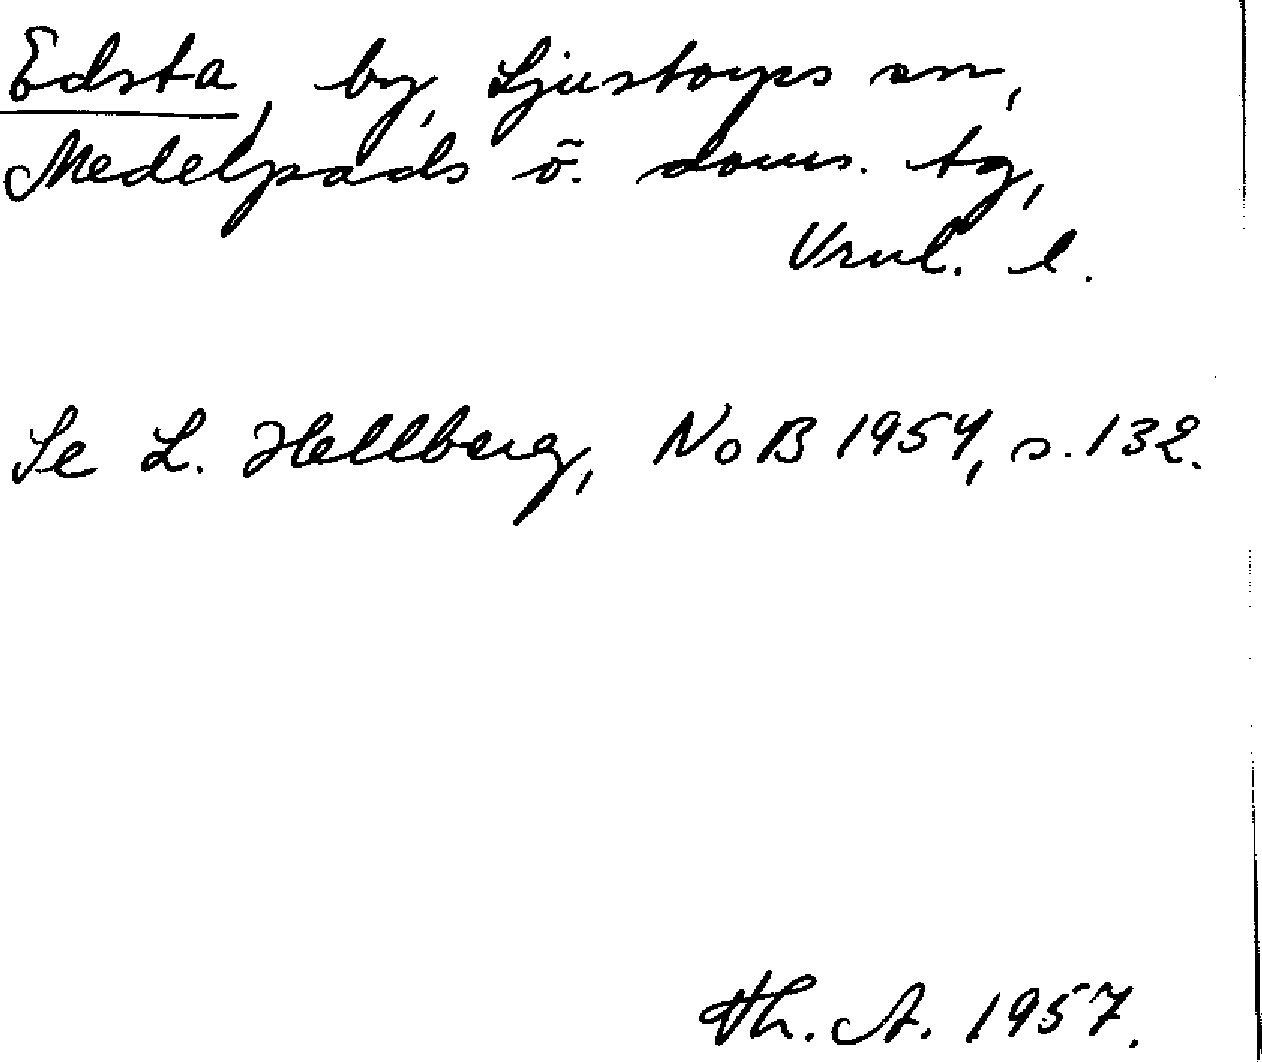 Edsta, by, Ljustorps sn,
Medelpads ö. doms. tg,
Vrnl. l.
Se L. Hellberg, NoB 1954, s. 132.
Th. A. 1957.